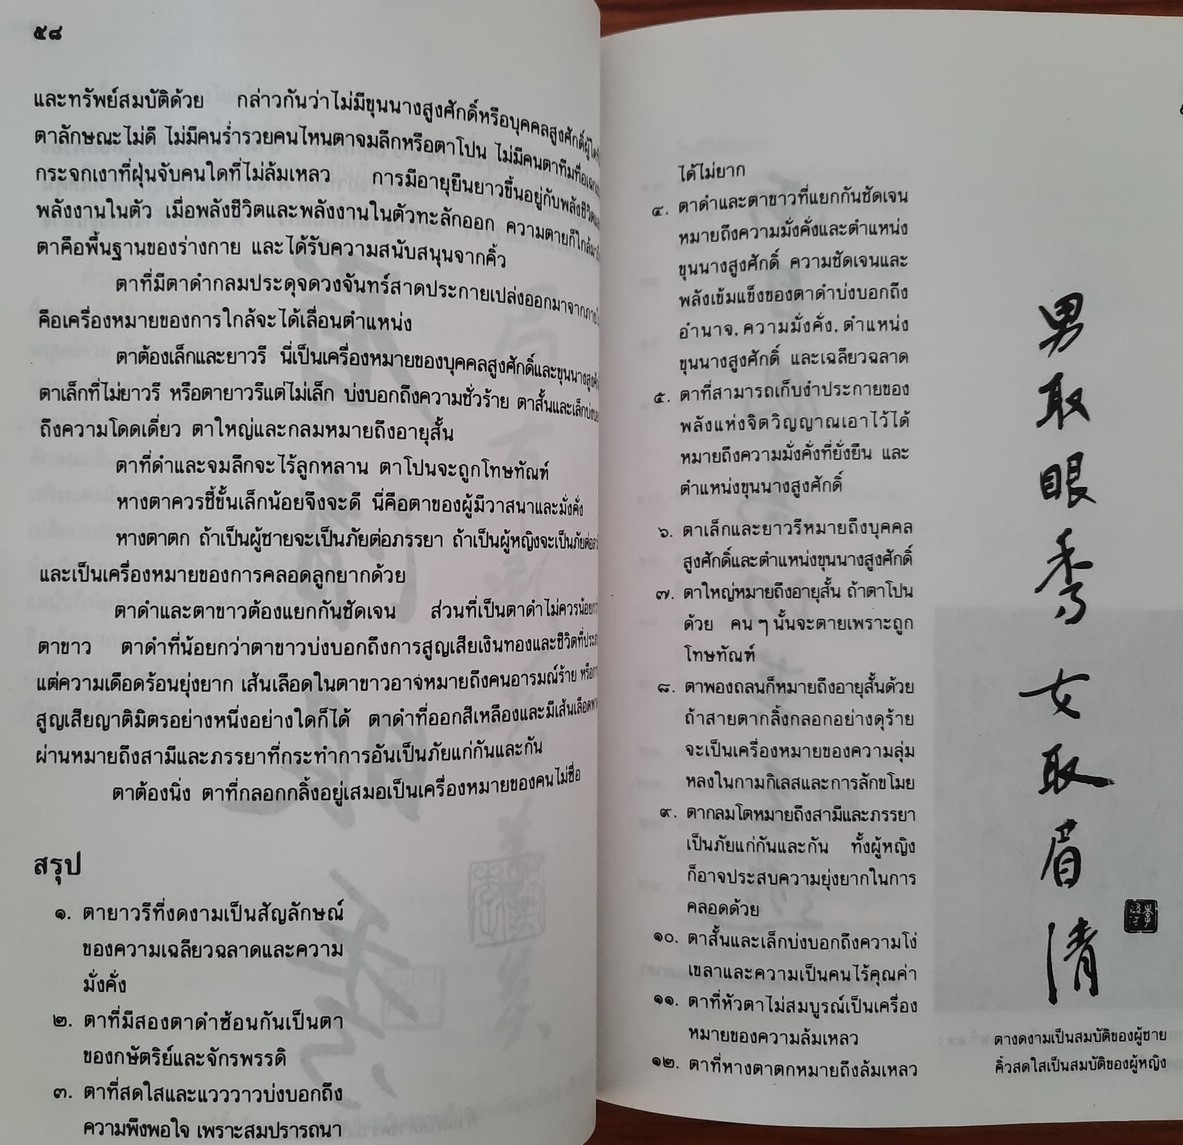 ๕๘
และทรัพย์สมบัติด้วย กล่าวกันว่าไม่มีขุนนางสูงศักดิ์หรือบุคคลสูงศักดิ์ผู้ใด
ตาลักษณะไม่ดี ไม่มีคนร่ำรวยคนไหนตาจมลึกหรือตาโปน ไม่มีคนตาทึมทื่อ
กระจกเงาที่ฝุ่นจับคนใดที่ไม่ล้มเหลว การมีอายุยืนยาวขึ้นอยู่กับพลังชีวิต
พลังงานในตัว เมื่อพลังชีวิตและพลังงานในตัวทะลักออก ความตายก็ใกล้
ตาคือพื้นฐานของร่างกาย และได้รับความสนับสนุนจากคิ้ว
ตาที่มีตาดำกลมประดุจดวงจันทร์สาดประกายเปล่งออกมาจากภายใน
คือเครื่องหมายของการใกล้จะได้เลื่อนตำแหน่ง
ตาต้องเล็กและยาวรี นี่เป็นเครื่องหมายของบุคคลสูงศักดิ์และขุนนางสูงศักดิ์
ตาเล็กที่ไม่ยาวรี หรือตายาวรีแต่ไม่เล็ก บ่งบอกถึงความชั่วร้าย ตาสั้นและเล็กบ่งบอก
ถึงความโดดเดี่ยว ตาใหญ่และกลมหมายถึงอายุสั้น
ตาที่ดำและจมลึกจะไร้ลูกหลาน ตาโปนจะถูกโทษทัณฑ์
หางตาควรชี้ขึ้นเล็กน้อยจึงจะดี นี่คือตาของผู้มีวาสนาและมั่งคั่ง
หางตาตก ถ้าเป็นผู้ชายจะเป็นภัยต่อภรรยา ถ้าเป็นผู้หญิงจะเป็นภัยต่อ
และเป็นเครื่องหมายของการคลอดลูกยากด้วย
ตาดำและตาขาวต้องแยกกันชัดเจน ส่วนที่เป็นตาดำไม่ควรน้อย
ตาขาว ตาดำที่น้อยกว่าตาขาวบ่งบอกถึงการสูญเสียเงินทองและชีวิตที่
แต่ความเดือดร้อนยุ่งยาก เส้นเลือดในตาขาวอาจหมายถึงคนอารมณ์ร้าย หรือ
สูญเสียญาติมิตรอย่างหนึ่งอย่างใดก็ได้ ตาดำที่ออกสีเหลืองและมีเส้นเลือด
ผ่านหมายถึงสามีและภรรยาที่กระทำการอันเป็นภัยแก่กันและกัน
ตาต้องนิ่ง ตาที่กลอกกลิ้งอยู่เสมอเป็นเครื่องหมายของคนไม่ซื่อ
สรุป
๑. ตายาวรีที่งดงามเป็นสัญลักษณ์
ของความเฉลียวฉลาดและความ
มั่งคั่ง
๒. ตาที่มีสองตาดำซ้อนกันเป็นตา
ของกษัตริย์และจักรพรรดิ
๓. ตาที่สดใสและแวววาวบ่งบอกถึง
ความพึงพอใจ เพราะสมปรารถนา
ได้ไม่ยาก
๔. ตาดำและตาขาวที่แยกกันชัดเจน
หมายถึงความมั่งคั่งและตำแหน่ง
ขุนนางสูงศักดิ์ ความชัดเจนและ
พลังเข้มแข็งของตาดำบ่งบอกถึง
อำนาจ, ความมั่งคั่ง, ตำแหน่ง
ขุนนางสูงศักดิ์ และเฉลียวฉลาด
๕. ตาที่สามารถเก็บงำประกายของ
พลังแห่งจิตวิญญาณเอาไว้ได้
หมายถึงความมั่งคั่งที่ยั่งยืน และ
ตำแหน่งขุนนางสูงศักดิ์
๖. ตาเล็กและยาวรีหมายถึงบุคคล
สูงศักดิ์และตำแหน่งขุนนางสูงศักดิ์
๗. ตาใหญ่หมายถึงอายุสั้น ถ้าตาโปน
ด้วย คนๆ นั้นจะตายเพราะถูก
โทษทัณฑ์
๘. ตาพองถลนก็หมายถึงอายุสั้นด้วย
ถ้าสายตากลิ้งกลอกอย่างดุร้าย
จะเป็นเครื่องหมายของความลุ่ม
หลงในกามกิเลสและการลักขโมย
๙. ตากลมโตหมายถึงสามีและภรรยา
เป็นภัยแก่กันและกัน ทั้งผู้หญิง
ก็อาจประสบความยุ่งยากในการ
คลอดด้วย
๑๐. ตาสั้นและเล็กบ่งบอกถึงความโง่
เขลาและความเป็นคนไร้คุณค่า
๑๑. ตาที่หัวตาไม่สมบูรณ์เป็นเครื่อง
หมายของความล้มเหลว
๑๒. ตาที่หางตาตกหมายถึงล้มเหลว
男取眼秀女取眉清
ตางดงามเป็นสมบัติของผู้ชาย
คิ้วสดใสเป็นสมบัติของผู้หญิง